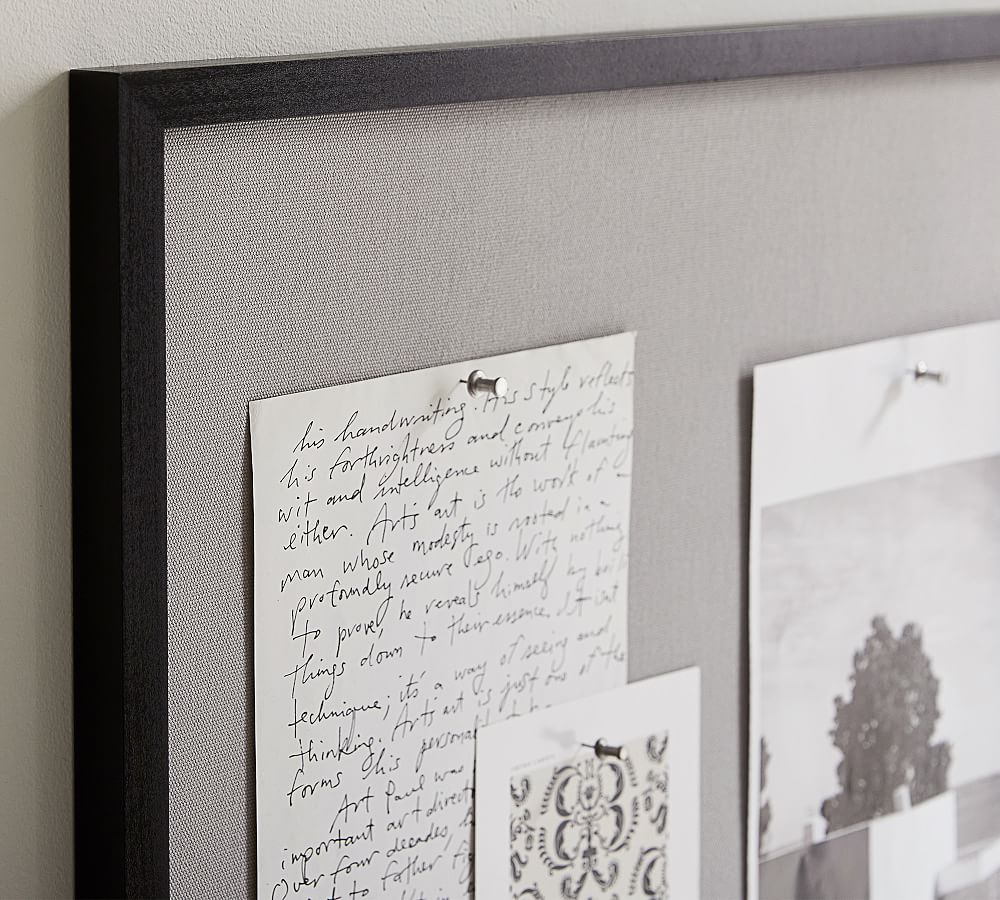 his handwriting. His style reflects
his forthrightness and conveys his
wit and intelligence without flaunting
either. Art's art is the work of a
man whose modesty is rooted in a
profoundly secure ego. With nothing
to prove, he reveals himself by boiling
things down to their essence. It isn't
technique; it's a way of seeing and
thinking. Art's art is just one of the
forms his personality
Art Paul was
important art direct
Over four decades, h
to father fig